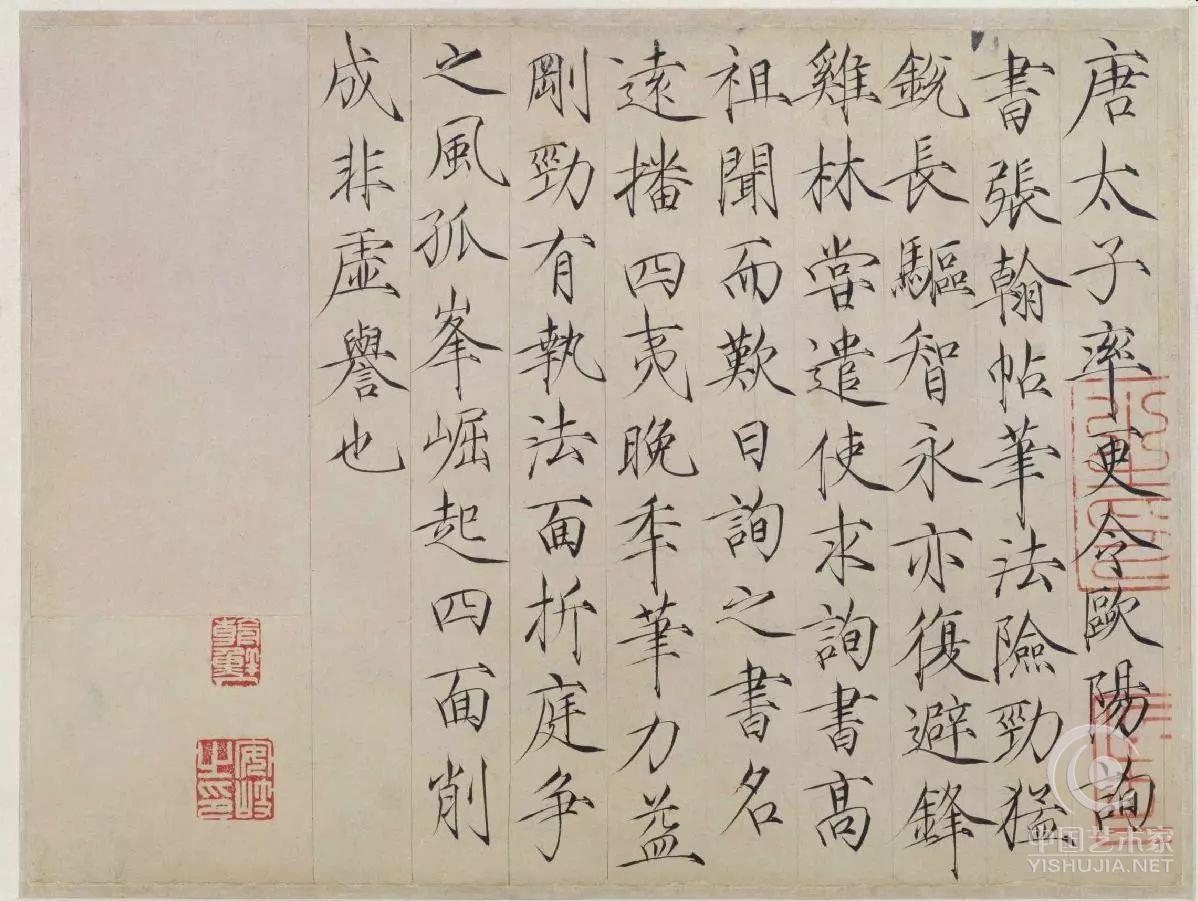 唐太子率更令歐陽詢
書張翰帖筆法險勁猛
銳長驅智永亦復避鋒
雞林嘗遣使求詢書高
祖聞而歎曰詢之書名
遠播四夷晚年筆力益
剛勁有執法面折庭爭
之風孤峯崛起四面削
成非虛譽也
朝鮮人
安岐之印
中国艺术家
YISHUJIA.NET